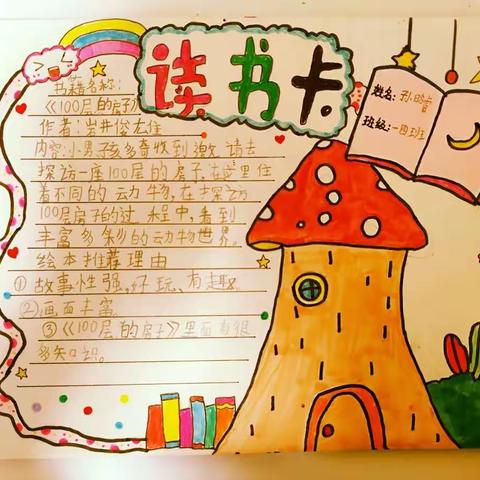 读书卡
姓名:孙晗
班级:一四班
书籍名称:
《100层的房子》
作者:岩井俊雄
内容:小男孩多奇收到邀请去
探访一座100层的房子,在这里住
着不同的动物,在探访
100层房子的过程中,看到
丰富多彩的动物世界。
绘本推荐理由
①故事性强,好玩、有趣。
②画面丰富。
③《100层的房子》里面有很
多知识。